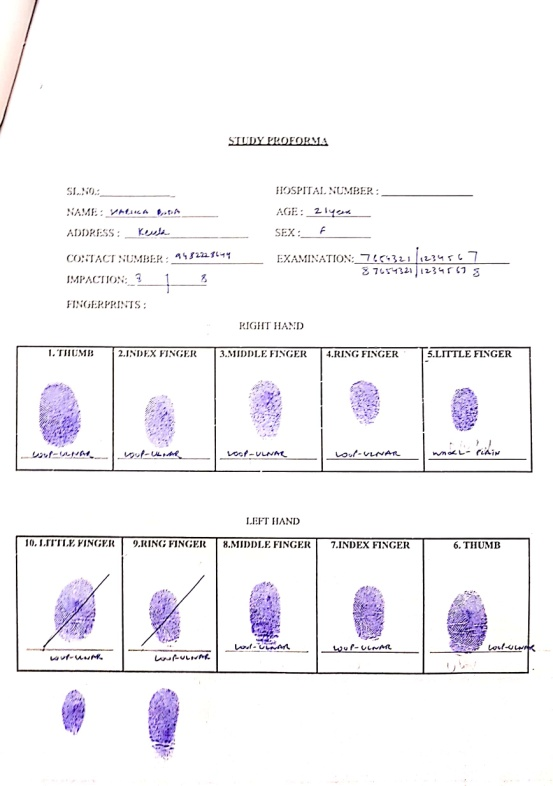 STUDY PROFORMA
SL.NO.: HOSPITAL NUMBER :
NAME : AGE : 21 years
ADDRESS : Kerala SEX : F
CONTACT NUMBER : EXAMINATION: 7654321 | 1234567
87654321 | 12345678
IMPACTION: 8
FINGERPRINTS :
RIGHT HAND
1. THUMB 2.INDEX FINGER 3.MIDDLE FINGER 4.RING FINGER 5.LITTLE FINGER
LOOP-ULNAR LOOP-ULNAR LOOP-ULNAR LOOP-ULNAR WHORL- PLAIN
LEFT HAND
10. LITTLE FINGER 9.RING FINGER 8.MIDDLE FINGER 7.INDEX FINGER 6. THUMB
LOOP-ULNAR LOOP-ULNAR LOOP-ULNAR LOOP-ULNAR LOOP-ULNAR